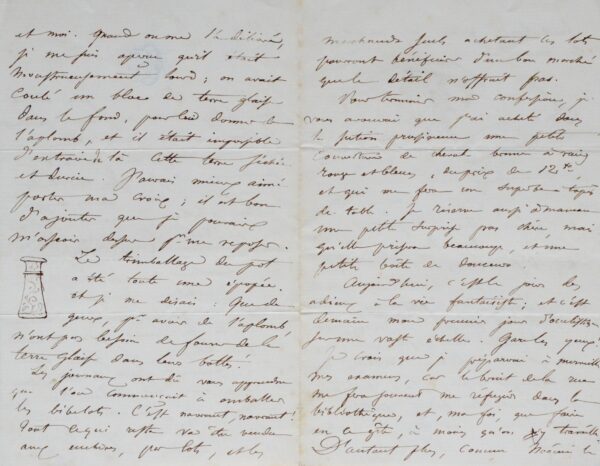 et moi. Quand on me l'a délivré,
je me suis aperçu qu'il était
monstrueusement lourd ; on avait
coulé un bloc de terre glaise
dans le fond, pour lui donner de
l'aplomb, et il était impossible
d'extraire de là cette terre séchée
et durcie. J'aurais mieux aimé
porter ma croix ; il est bon
d'ajouter que je pouvais
m'asseoir dessus pr me reposer.
Le trimballage du pot
a été toute une épopée.
et je me disais : Que de
gens, pr avoir de l'aplomb
n'ont pas besoin de fourrer de la
terre glaise dans leurs bottes !
Les journaux ont dû vous apprendre
que l'on commençait à emballer
les bibelots. C'est navrant, navrant !
Tout ce qui reste va être vendu
aux enchères, par lots, et les
marchands seuls achetant les lots
pourront bénéficier d'un bon marché
que le détail n'offrait pas.
Pour terminer ma confession, je
vous avouerai que j'ai acheté dans
la section une petite
couverture de cheval bonne à raies
rouges et bleues, du prix de 12 fr,
et qui me fera un superbe tapis
de table. Je réserve aussi à maman
une petite surprise pas chère, mais
qu'elle prisera beaucoup, et une
petite boîte de douceurs.
Aujourd'hui, c'est le jour des
adieux à la vie fantaisiste ; et c'est
demain mon premier jour
sur une vaste échelle. Gare les yeux !
Je crois que je préparerai à merveille
mes examens, car le bruit de la rue
me fera souvent me réfugier dans la
bibliothèque, et, ma foi, que faire
en ce gîte, à moins qu'on y travaille
D'autant plus, comme le